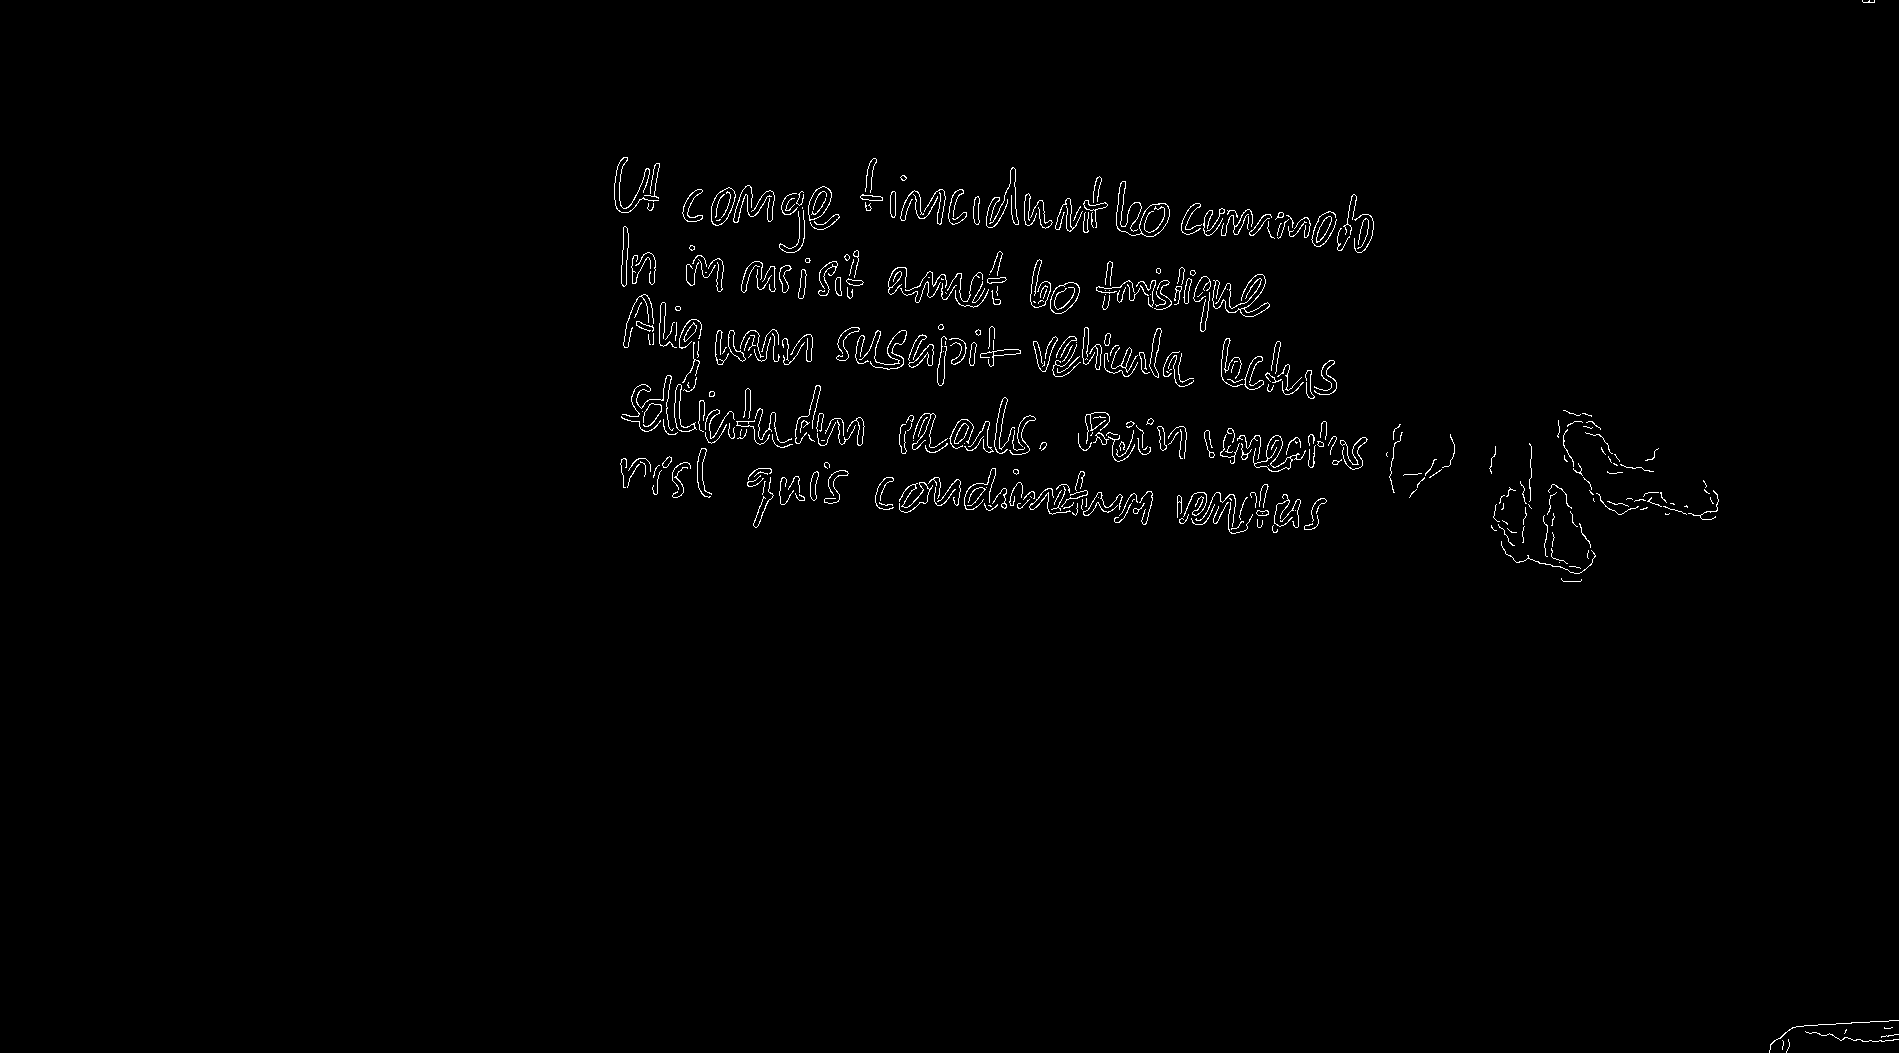 Ut conge tincidunt leo commodo
In in nisi sit amet leo tristique
Aliquam suscipit vehicula lectus
sollicitudin iaculis. Proin
nisl quis condimetum venatias